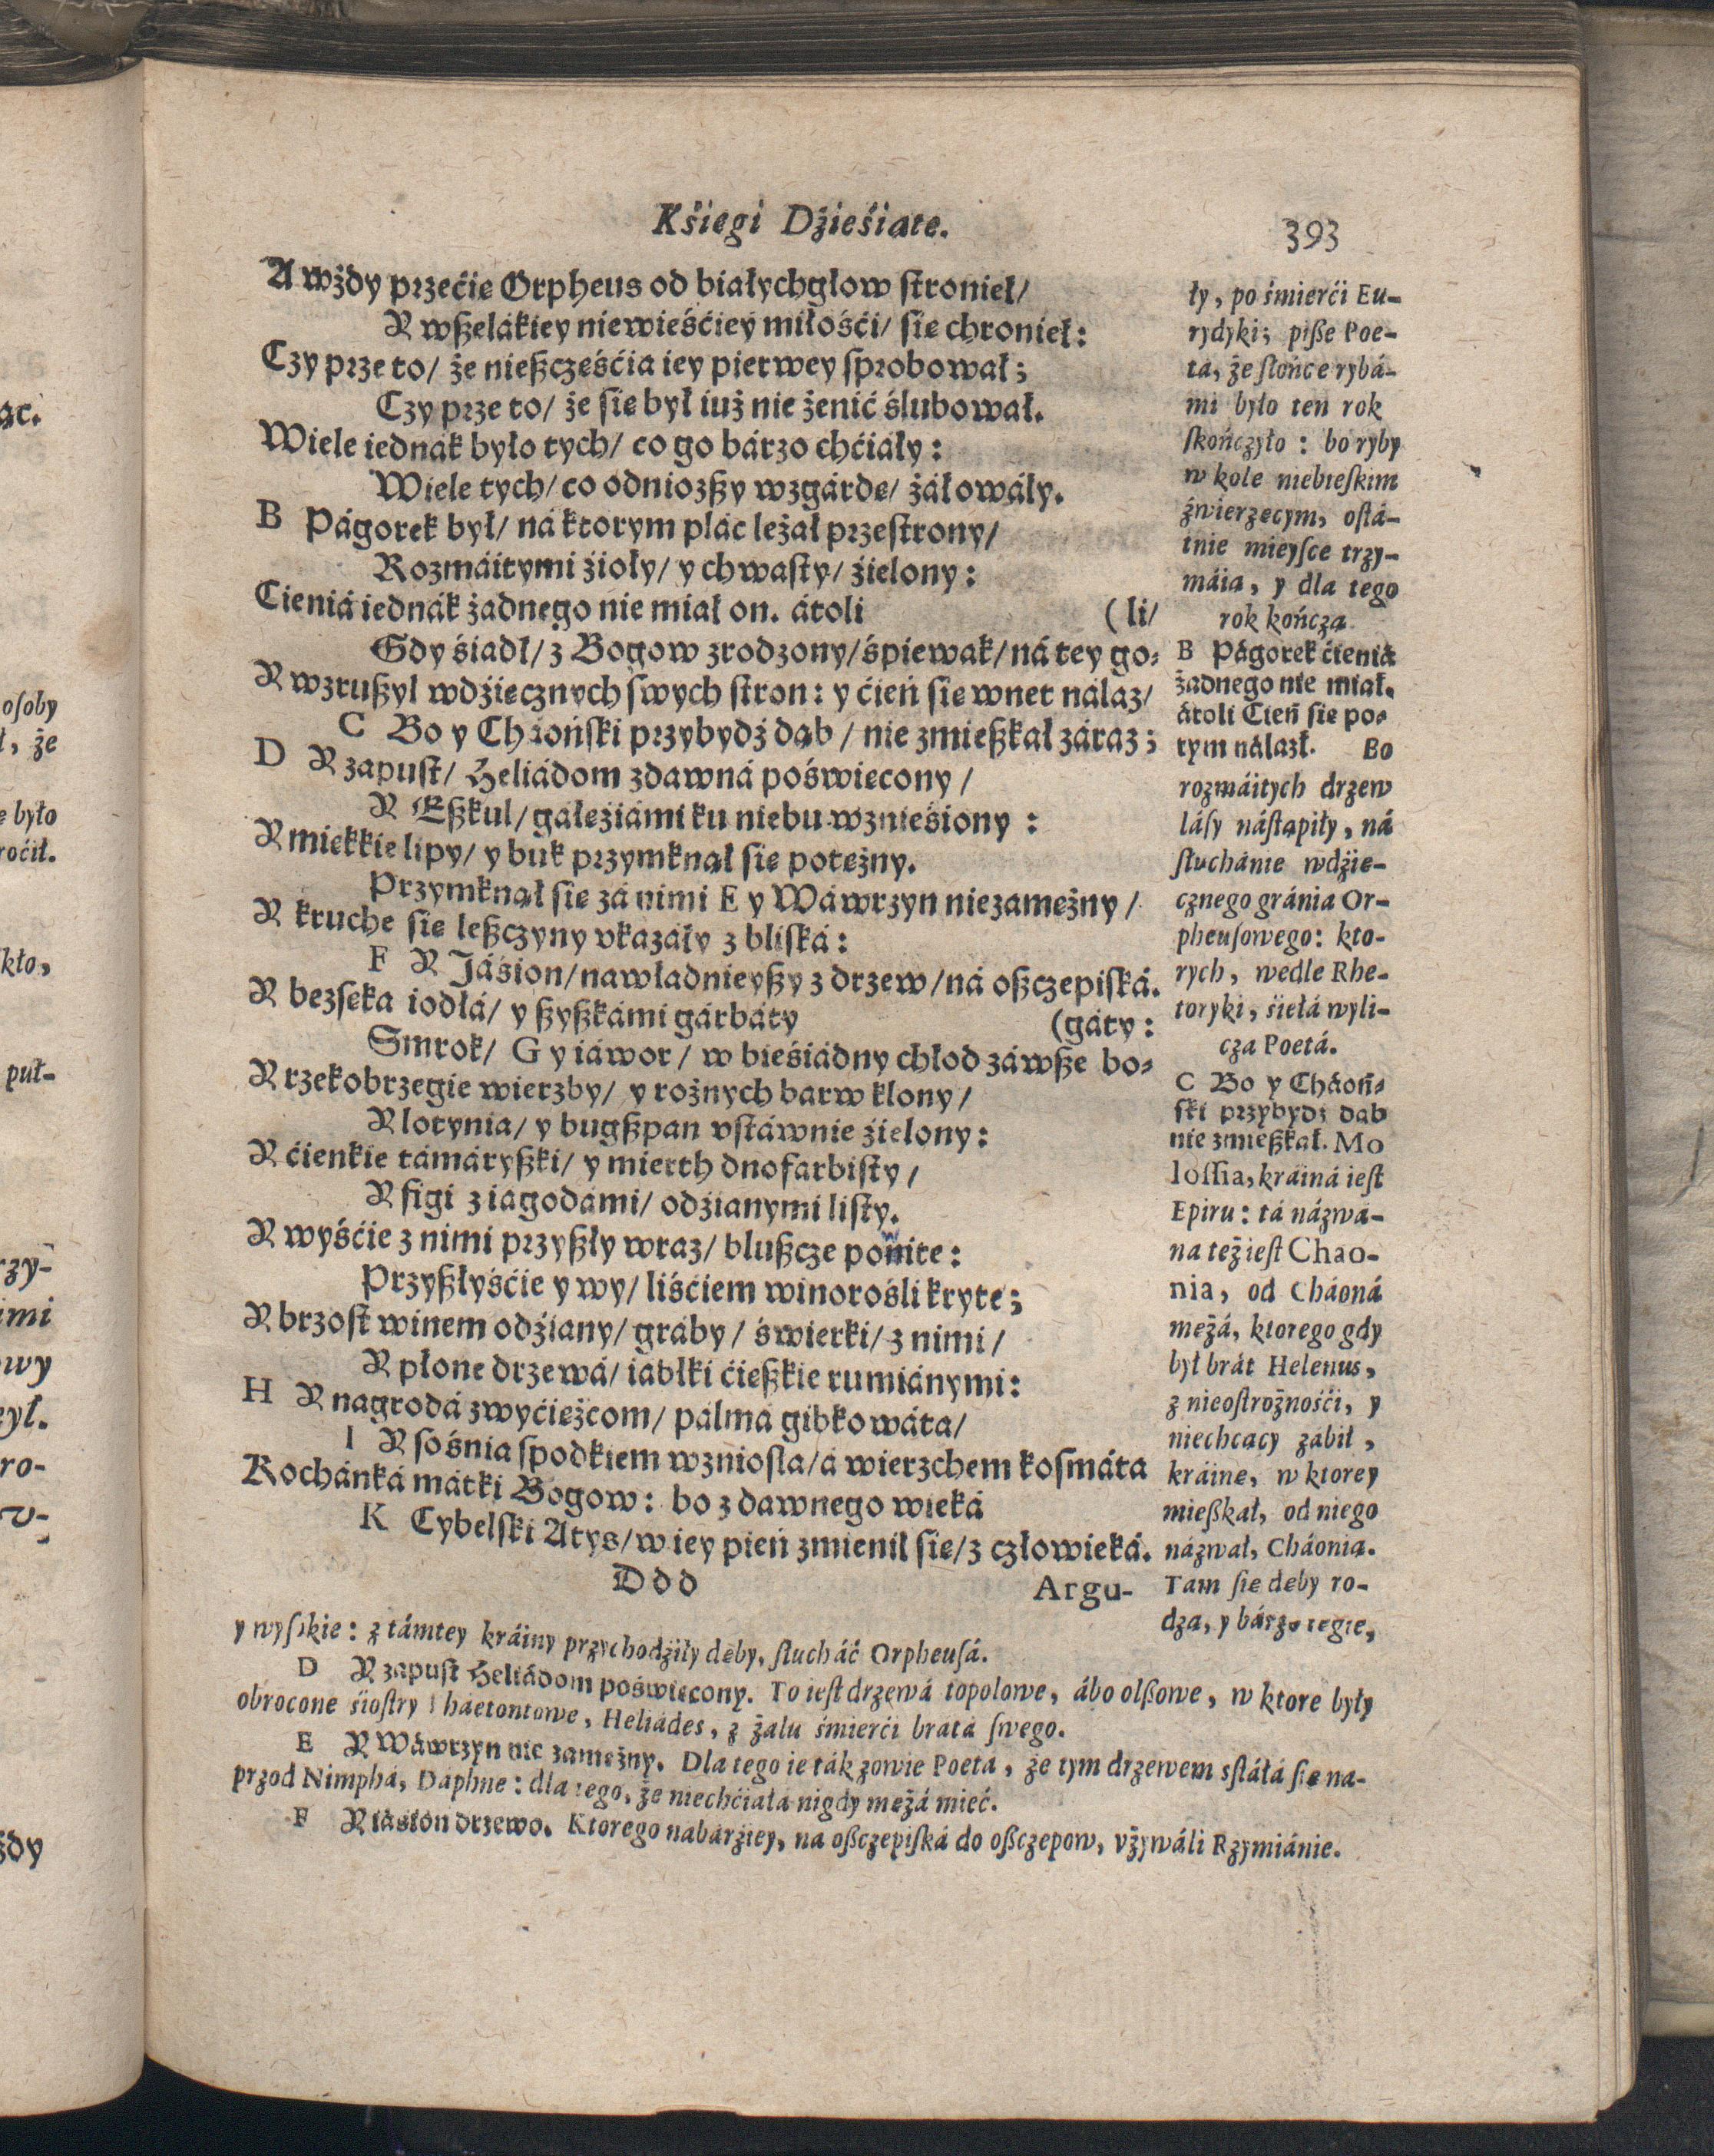 Kśiegi Dźieśiate.
393
A wżdy przećie Orpheus od białychgłow stronieł/
Y wßelákiey niewieśćiey miłośći/ sie chronieł:
Czy prze to/ że nießcześćia iey pierwey sprobował;
Czy prze to/ że sie był iuż nie żenić ślubował.
Wiele iednák było tych/ co go bárzo chćiáły:
Wiele tych/ co odniozßy wzgárde/ żáłowáły.
B Págorek był/ ná ktorym plác leżał przestrony/
Rozmáitymi źioły/ y chwasty/ źielony:
Cieniá iednák żadnego nie miał on. átoli (li/
Gdy śiadł/ z Bogow zrodzony/ śpiewak/ ná tey go-
Y wzrußyl wdźiecznych swych stron: y ćień sie wnet nálaz/
C Bo y Cháoński przybydź dąb/ nie zmießkał záraz;
D Y zapust/ Heliádom zdawná poświecony/
Y Eßkul/ gáłeźiámi ku niebu wznieśiony:
Y miekkie lipy/ y buk przymknął sie poteżny.
Przymknął sie zá nimi E y Wáwrzyn niezameżny/
Y kruche sie leßczyny vkazáły z bliská:
F Y Jáśion/ nawładnieyßy z drzew/ ná oßczepiská.
Y bezseka iodłá/ y ßyßkámi gárbáty (gáty:
Smrok/ G y iáwor/ w bieśiádny chłod záwße bo-
Y rzekobrzegie wierzby/ y rożnych barw klony/
Y lotynia/ y bugßpan vstáwnie źielony:
Y ćienkie támáryßki/ y mierth dnofarbisty/
Y figi z iagodámi/ odźianymi listy.
Y wyśćie z nimi przyßły wraz/ blußcze powite:
Przyßłyśćie y wy/ liśćiem winorośli kryte;
Y brzost winem odźiany/ gráby/ świerki/ z nimi/
Y płone drzewá/ iabłki ćießkie rumiánymi:
H Y nagrodá zwyćieżcom/ pálmá gibkowáta/
I Y sośnia spodkiem wzniosla/ á wierzchem kosmáta
Kochánká mátki Bogow: bo z dawnego wieká
K Cybelski Atys/ w iey pień zmienił sie/ z człowieká.
Ddd
Argu-
ły, po śmierći Eu-
rydyki; piße Poe-
ta, że słońce rybá-
mi było ten rok
skończyło: bo ryby
w kole niebieskim
źwierzecym, ostá-
tnie mieysce trzy-
máia, y dla tego
rok kończą
B Págorek ćieniá
żadnego nie miał.
átoli Cień sie po-
tym nálazł. Bo
rozmáitych drzew
lásy nástąpiły, ná
słuchánie wdźie-
cznego gránia Or-
pheusowego: kto-
rych, wedle Rhe-
toryki, śiełá wyli-
cza Poetá.
C Bo y Cháoń-
ski przybydź dąb
nie zmießkał. Mo
lossia, kráiná iest
Epiru: tá názwá-
na też iest Chao-
nia, od Cháoná
meżá, ktorego gdy
był brát Helenus,
z nieostrożnośći, y
niechcacy zábił,
kráine, w ktorey
mießkał, od niego
názwał, Cháonią.
Tam sie deby ro-
dza, y bárzo tegie,
y wysokie: z támtey kráiny przychodźiły deby, słucháć Orpheusá.
D Y zapust Heliádom poświecony. To iest drzewá topolowe, ábo olßowe, w ktore były
obrocone śiostry Phaetontowe, Heliádes, z żalu śmierći bratá swego.
E Y Wáwrzyn nie zameżny. Dla tego ie ták zowie Poetá, że tym drzewem sstáłá sie na-
przod Nimphá, Dáphne: dla tego, że niechćiała nigdy meżá mieć.
F Y iáśion drzewo. Ktorego nabárźiey, na oßczepiská do oßczepow, vżywáli Rzymiánie.